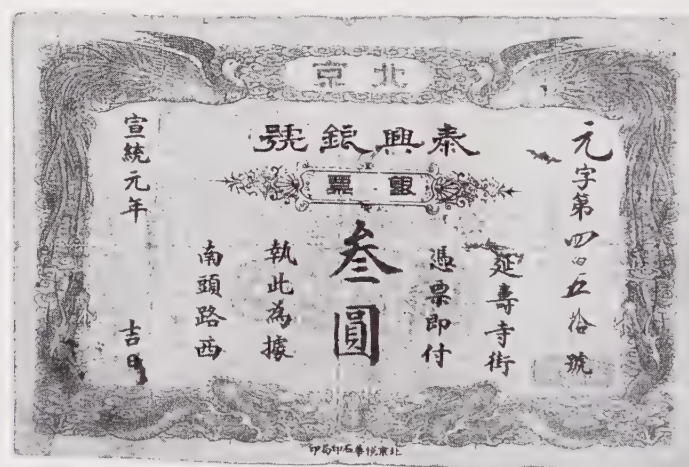 北京
泰興銀號
銀票
元字第四百五拾號
延壽寺街
憑票即付
叁圓
執此為據
南頭路西
宣統元年
吉日
北京悅華石印局印